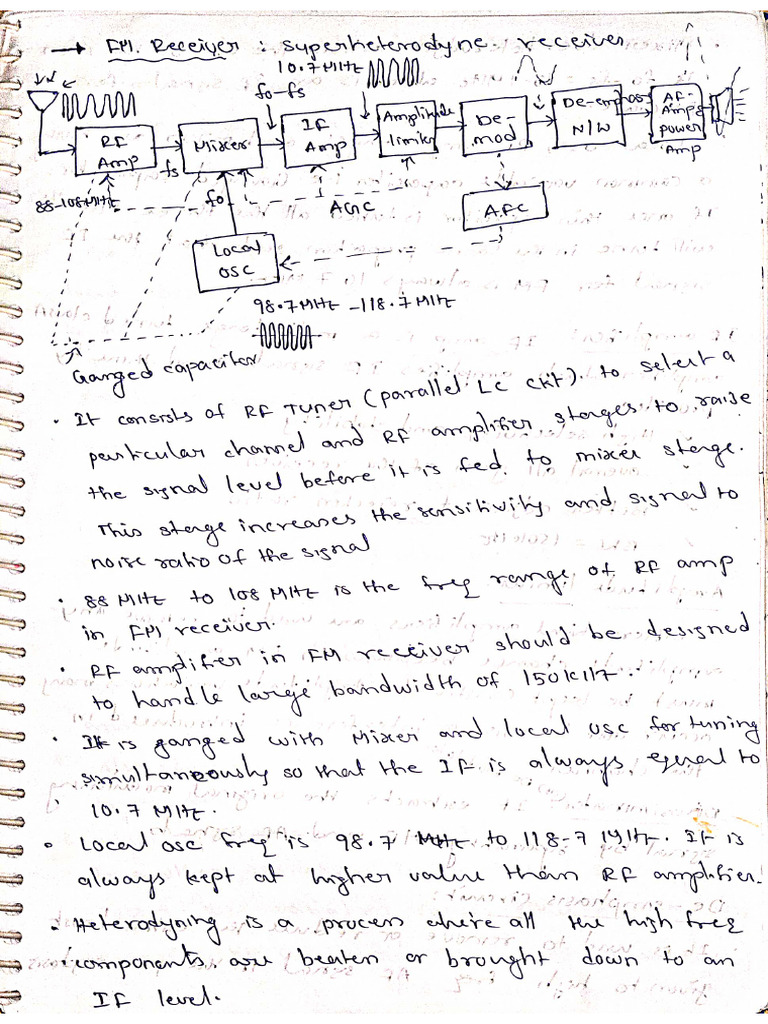 → FM. Receiver : superheterodyne receiver
10.7 MHz
fo-fs
RF Amp
Mixer
IF Amp
Amplitude limiter
De-mod
De-emphasis N/W
AF-Amp & power Amp
fs
fo
88-108 MHz
AGC
A.F.C
Local osc
98.7 MHz - 118.7 MHz
Ganged capacitor
• It consists of RF Tuner (parallel LC ckt). to select a
particular channel and RF amplifier stages to raise
the signal level before it is fed. to mixer stage.
This stage increases the sensitivity and signal to
noise ratio of the signal
• 88 MHz to 108 MHz is the freq range of RF amp
in FM receiver.
• RF amplifier in FM receiver should be designed
to handle large bandwidth of 150KHz.
• It is ganged with Mixer and local osc for tuning
simultaneously so that the IF is always equal to
10.7 MHz.
• Local osc freq is 98.7 MHz to 118-7 MHz. It is
always kept at higher value than RF amplifier.
• Heterodyning is a process where all the high freq
components are beaten or brought down to an
IF level.